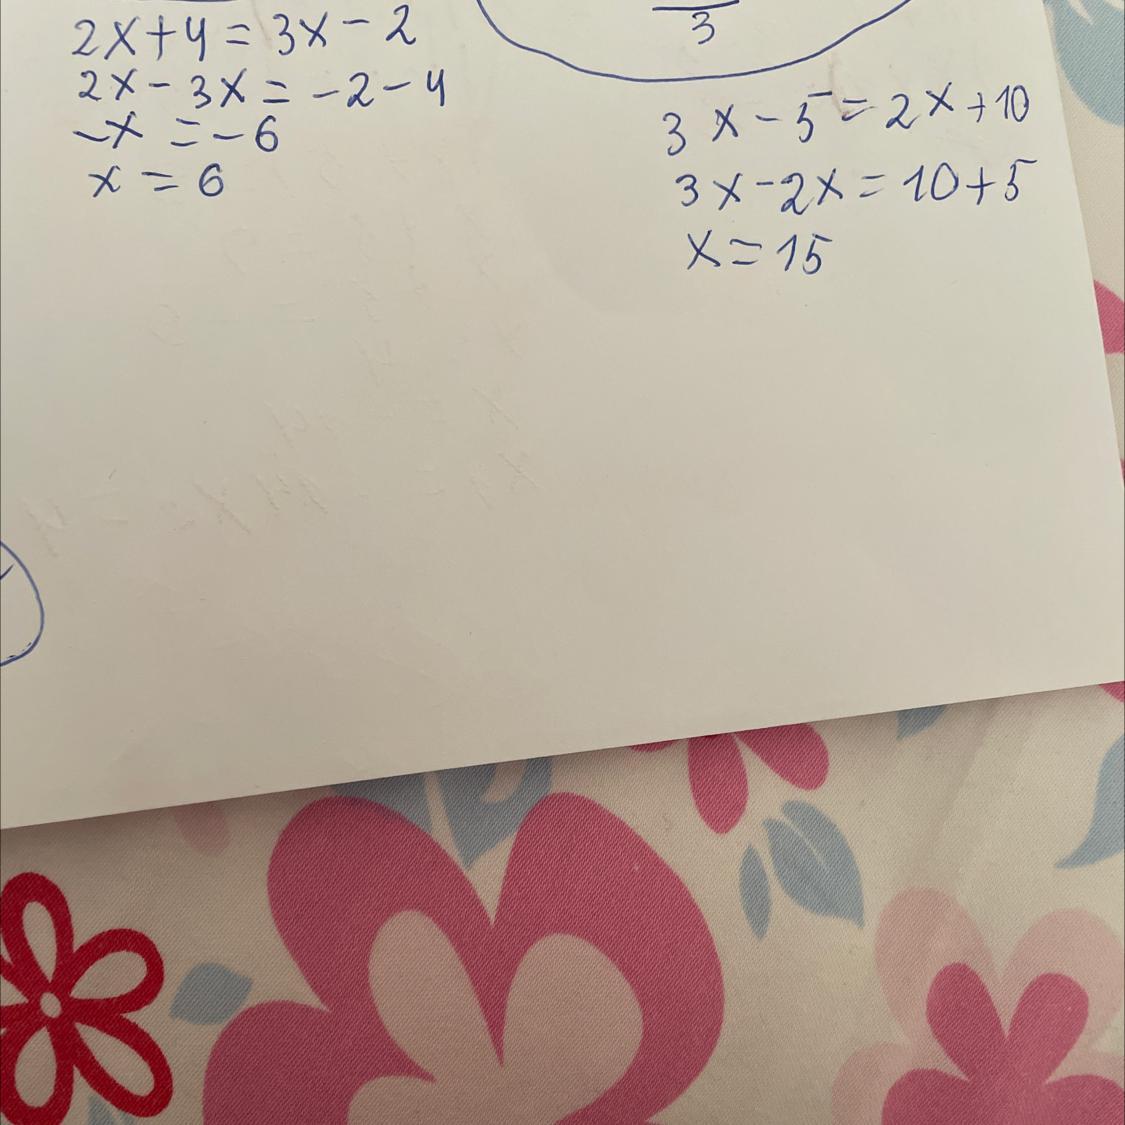 2x+4=3x-2
2x-3x=-2-4
-x=-6
x=6
3
3x-5=2x+10
3x-2x=10+5
x=15